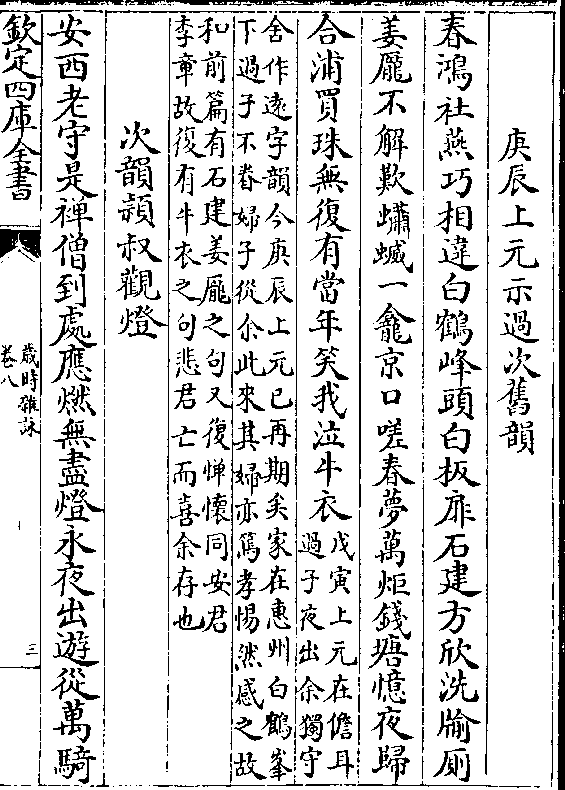 庚辰上元示過次舊韻
春鴻社燕巧相違白鶴峰頭白扳扉石建方欣洗牏厠
姜龎不解歎蠨蝛一龕京口嗟春夢萬炬錢塘憶夜歸
合浦買珠無復有當年笑我泣牛衣
戊寅上元在儋耳
過子夜出余獨守
舍作逺字韻今庚辰上元已再期矣家在惠州白鶴峯
下過子不眷婦子從余此來其婦亦篤孝惕然感之故
和前篇有石建姜龎之句又復惮懷同安君
李章故復有牛衣之句悲君亡而喜余存也
次韻頴叔觀燈
安西老守是禅僧到處應燃無盡燈永夜出遊從萬騎
欽定四庫全書
歲時雜詠
卷八
三